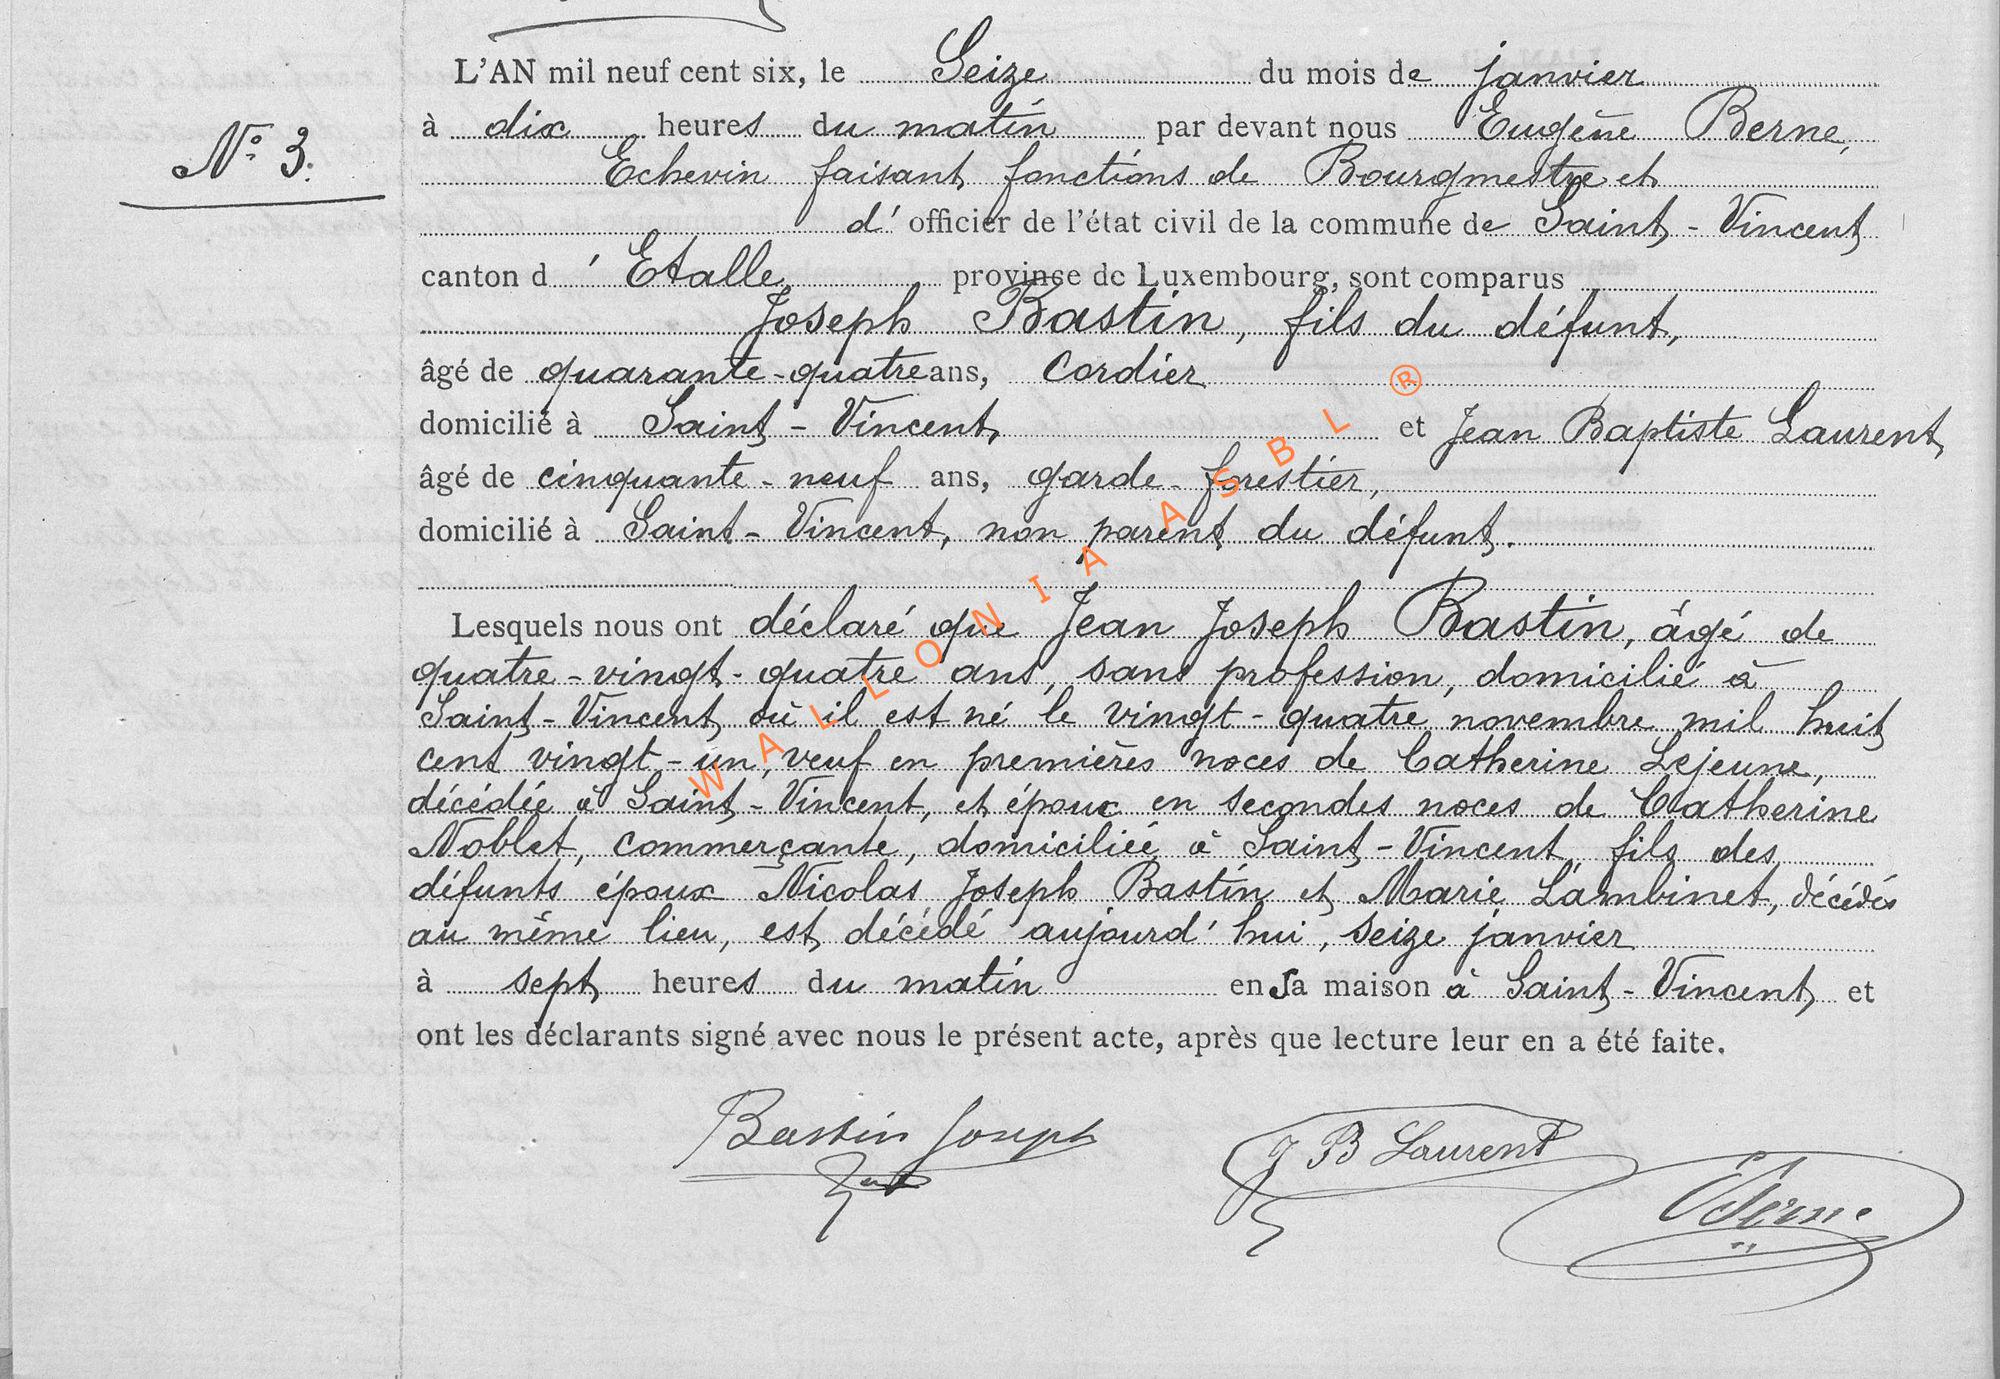 L'AN mil neuf cent six, le Seize du mois de janvier
N° 3.
à dix heures du matin par devant nous Eugène Berne,
Echevin faisant fonctions de Bourgmestre et
d' officier de l'état civil de la commune de Saint-Vincent
canton d'Etalle province de Luxembourg, sont comparus
Joseph Bastin, fils du défunt,
âgé de quarante-quatre ans, cordier
domicilié à Saint-Vincent, et Jean Baptiste Laurent
âgé de cinquante-neuf ans, garde-forestier,
domicilié à Saint-Vincent, non parent du défunt.
Lesquels nous ont déclaré que Jean Joseph Bastin, âgé de
quatre-vingt-quatre ans, sans profession, domicilié à
Saint-Vincent où il est né le vingt-quatre novembre mil huit
cent vingt-un, veuf en premières noces de Catherine Lejeune,
décédée à Saint-Vincent, et époux en secondes noces de Catherine
Noblet, commerçante, domiciliée à Saint-Vincent, fils des
défunts époux Nicolas Joseph Bastin et Marie Lambinet, décédés
au même lieu, est décédé aujourd'hui, seize janvier
à sept heures du matin en sa maison à Saint-Vincent, et
ont les déclarants signé avec nous le présent acte, après que lecture leur en a été faite.
Bastin Joseph
J B Laurent
EBerne
WALLONIA ASBL ®